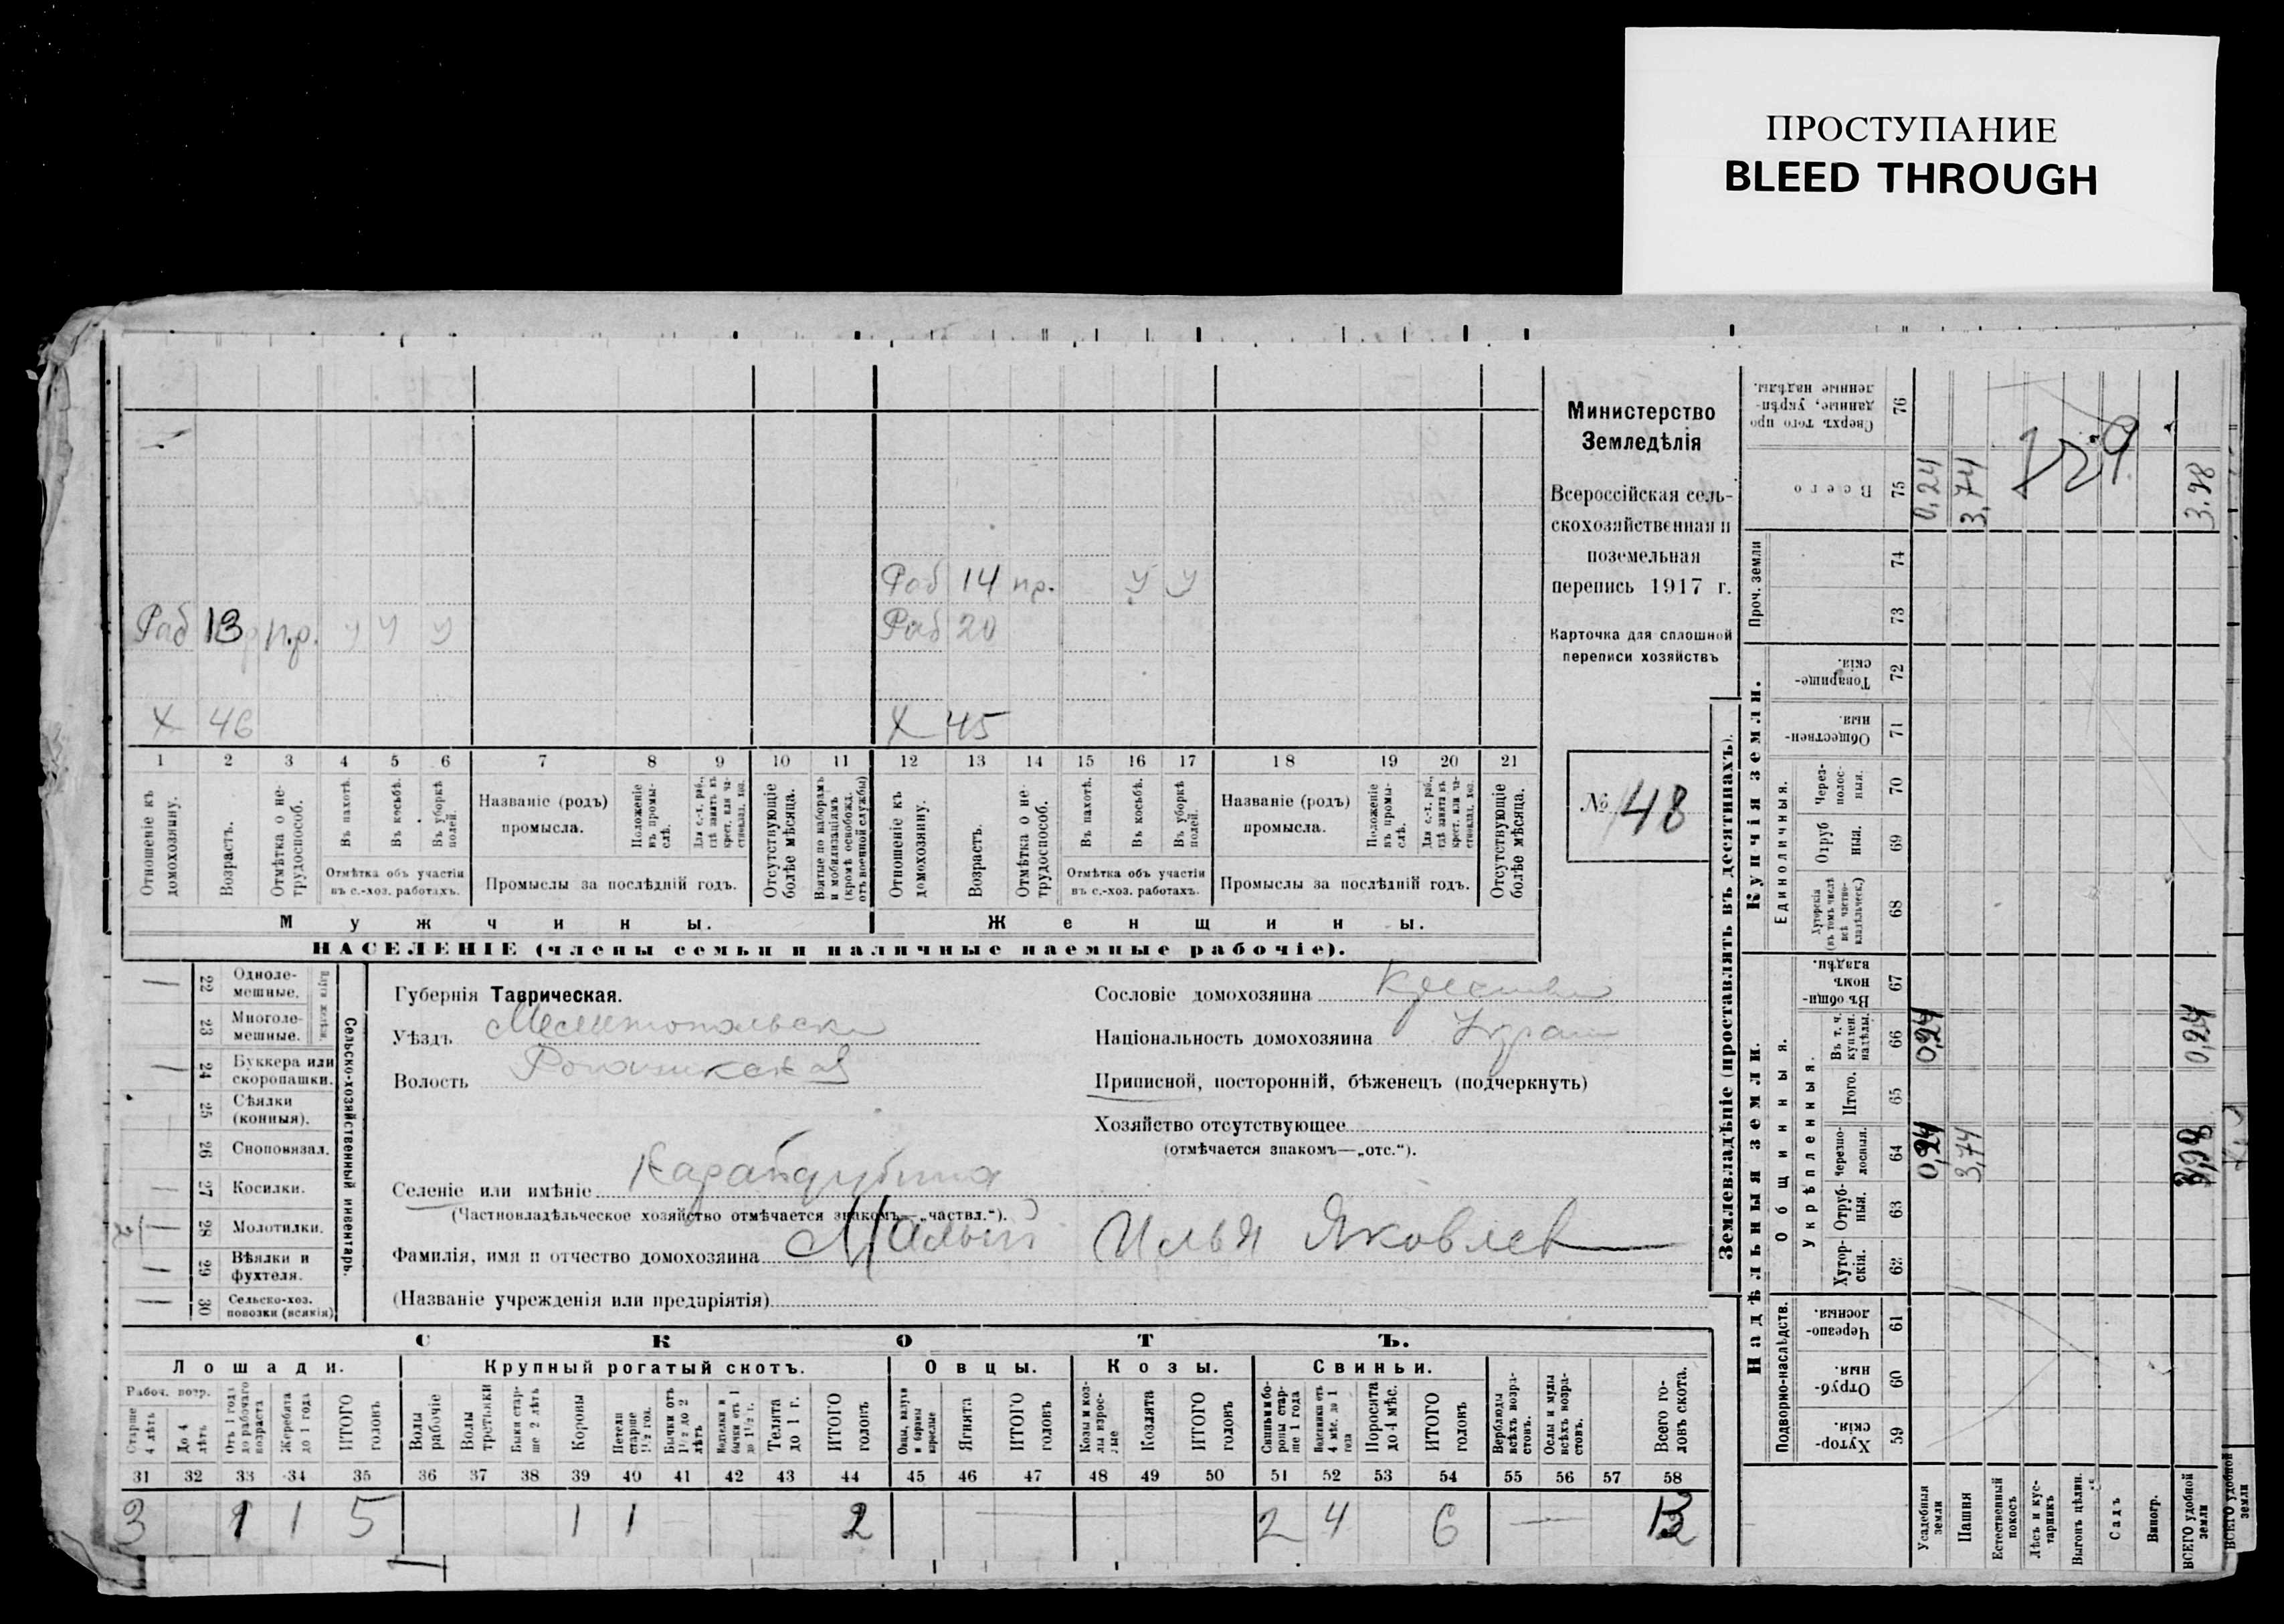 ПРОСТУПАНИЕ
BLEED THROUGH
Раб 14 пр. у у
Раб 13 п.р. у у у
Раб 20
Х 46
Х 45
1 2 3 4 5 6 7 8 9 10 11 12 13 14 15 16 17 18 19 20 21
Отношеніе къ домохозяину.
Возрастъ.
Отмѣтка о не-трудоспособ.
Въ пахотѣ.
Въ косьбѣ.
Въ уборкѣ полей.
Отмѣтка объ участіи
въ с.-хоз. работахъ.
Названіе (родъ)
промысла.
Положеніе въ промы-слѣ.
Для с.-х. раб., гдѣ занятъ въ крест. или ча-стновлад. хоз.
Промыслы за послѣдній годъ.
Отсутствующіе болѣе мѣсяца.
Взятые по наборамъ и мобилизаціямъ (кромѣ освобожд. отъ военной службы)
Отношеніе къ домохозяину.
Возрастъ.
Отмѣтка о не-трудоспособ.
Въ пахотѣ.
Въ косьбѣ.
Въ уборкѣ полей.
Отмѣтка объ участіи
въ с.-хоз. работахъ.
Названіе (родъ)
промысла.
Положеніе въ промы-слѣ.
Для с.-х. раб., гдѣ занята въ крест. или ча-стновлад. хоз.
Промыслы за послѣдній годъ.
Отсутствующіе болѣе мѣсяца.
Мужчины.
Женщины.
НАСЕЛЕНІЕ (члены семьи и наличные наемные рабочіе).
Министерство
Земледѣлія
Всероссійская сель-
скохозяйственная и
поземельная
перепись 1917 г.
Карточка для сплошной
переписи хозяйствъ
№ 48
22 Одноле-мешные.
23 Многоле-мешные.
24 Буккера или скоропашки.
25 Сѣялки (конныя).
26 Сноповязал.
27 Косилки.
28 Молотилки.
29 Вѣялки и фухтеля.
30 Сельско-хоз. повозки (всякія)
Сельско-хозяйственный инвентарь.
Губернія Таврическая.
Уѣздъ Мелитопольскі
Волость Рогачикская
Селеніе или имѣніе Карайдубина
(Частновладѣльческое хозяйство отмѣчается знакомъ—„частвл.“).
Фамилія, имя и отчество домохозяина Малый Илья Яковлев
(Названіе учрежденія или предпріятія)
Сословіе домохозяина
Національность домохозяина Украин
Приписной, посторонній, бѣженецъ (подчеркнуть)
Хозяйство отсутствующее
(отмѣчается знакомъ—„отс.“).
СКОТЪ.
Лошади. Крупный рогатый скотъ. Овцы. Козы. Свиньи.
Рабоч. возр.
Старше 4 лѣтъ
До 4 лѣтъ
Отъ 1 года до рабочаго возраста
Жеребята до 1 года
ИТОГО головъ
Волы рабочіе
Волы третьяки
Быки стар-ше 2 лѣтъ
Коровы
Нетели старше 1½ год.
Бычки отъ 1½ до 2 лѣтъ
Телята до 1 г.
ИТОГО головъ
Овцы, валухи и бараны взрослые
Ягнята
ИТОГО головъ
Козы и коз-лы взрос-лые
Козлята
ИТОГО головъ
Свиньи и бо-ровы стар-ше 1 года
Подсвинки отъ 4 мѣс. до 1 года
Поросята до 4 мѣс.
ИТОГО головъ
Верблюды всѣхъ возра-стовъ.
Ослы и мулы всѣхъ возра-стовъ.
Всего го-ловъ скота.
31 32 33 34 35 36 37 38 39 40 41 42 43 44 45 46 47 48 49 50 51 52 53 54 55 56 57 58
3 1 1 5 1 1 2 2 4 6 13
Землевладѣніе (проставлять въ десятинахъ).
Надѣльныя земли.
Купчія земли.
Проч. земли
Подворно-наслѣдств.
Общинныя.
Укрѣпленныя.
Единоличныя.
Хутор-скія. 59
Отруб-ныя. 60
Черезпо-лосныя. 61
Хутор-скія. 62
Отруб-ныя. 63
Черезпо-лосныя. 64
Итого. 65
Въ т. ч. куплен. надѣлы. 66
Въ общин-номъ владѣн. 67
Хуторскія (въ томъ числѣ всѣ частно-владѣльческ.) 68
Отруб ныя. 69
Через-полос-ныя. 70
Обществен-ныя. 71
Товарище-скія. 72
73
74
Всего 75
Сверхъ того про-данные, укрѣп-ленные надѣлы. 76
Усадебныя земли 0,24 0,24 0,24
Пашня 3,74 3,74
Естественный покосъ
Лѣсъ и кус-тарникъ
Выгонъ цѣлин.
Садъ
Виногр.
ВСЕГО удобной земли 3,98 0,24 3.98
ВСЕГО удобной земли